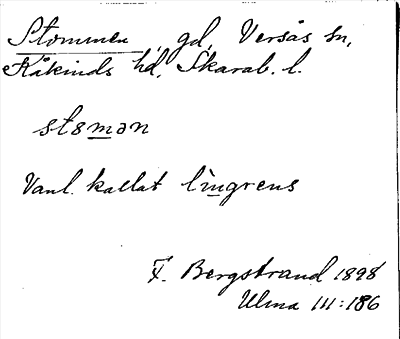 Stommen, gd, Versås sn,
Kåkinds hd, Skarab. l.
stomən
Vanl. kallat lìngrens
F. Bergstrand 1898
Ulma 111:186